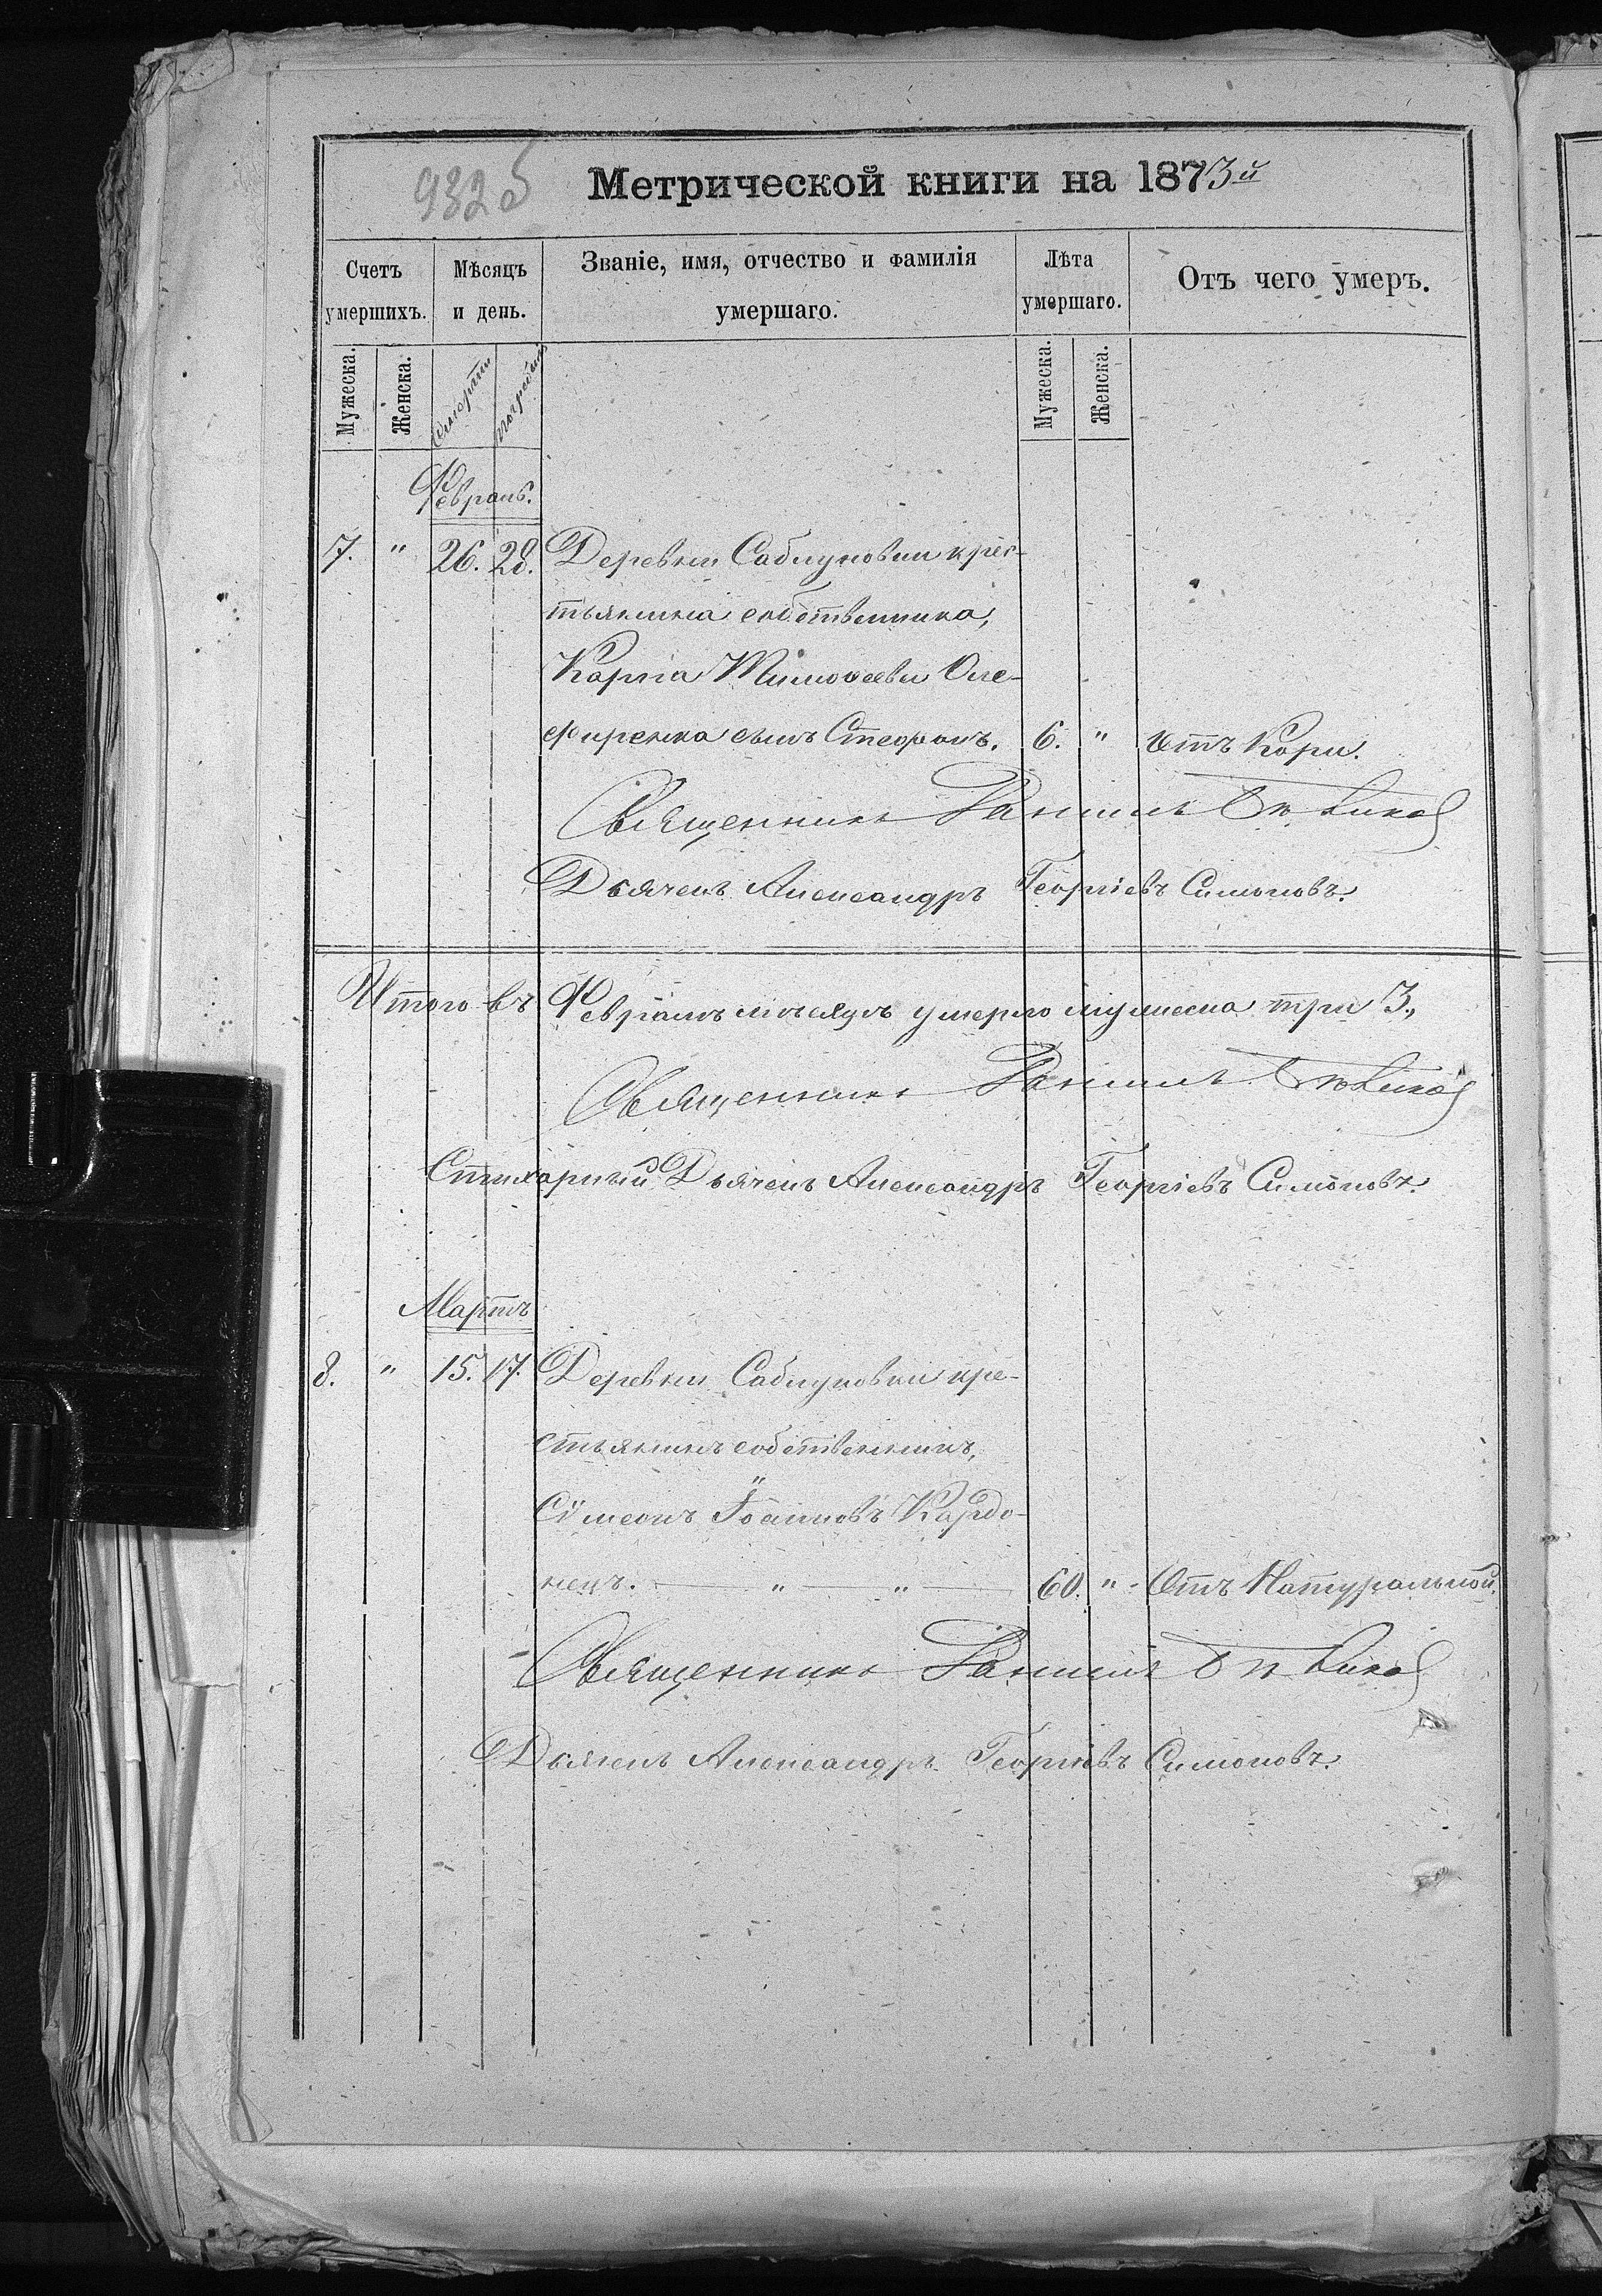 932 б
Метрической книги на 1873й
Счетъ умершихъ. Мѣсяцъ и день. Званіе, имя, отчество и фамилія умершаго. Лѣта умершаго. Отъ чего умеръ.
Мужеска. Женска. смерти погребенія Мужеска. Женска.
Февраль.
7. " 26. 28. Деревни Саблуковки крес-
тьянина собственника,
Карпа Тимоѳеева Оле-
фиренка сынъ Стефанъ. 6. " Отъ Кори.
Священникъ Даніилъ
Дьячекъ Александръ Георгіевъ Симоновъ.
Итого въ Февралѣ мѣсяцѣ умерло мужеска три 3.,
Священникъ Даніилъ
Стихарный Дьячекъ Александръ Георгіевъ Симоновъ.
Мартъ
8. " 15. 17. Деревни Саблуковки кре-
стьянинъ собственникъ,
Сѵмеонъ Іоанновъ Кардо-
нецъ. — " — " — 60. " Отъ Натуральной.
Священникъ Даніилъ
Дьячекъ Александръ Георгіевъ Симоновъ.